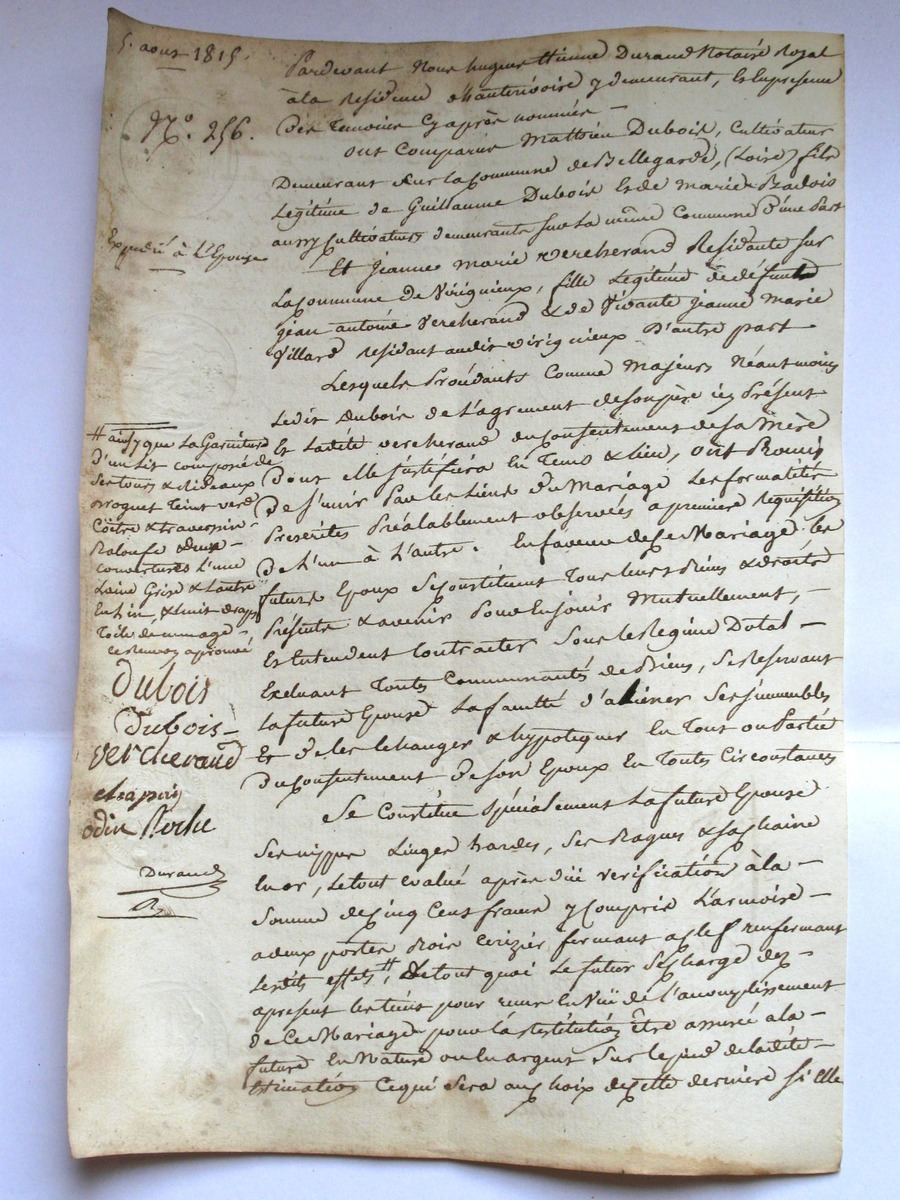 5. aout 1815.
N.º 256.
Expedié à L'Epouse
Pardevant Nous hugues Etienne Durand Notaire Royal
à la Residence de hauterivoire y demeurant, Et En presence
Des Temoins Cy après nommés —
Ont Comparus Mathieu Dubois, Cultivateur
Demeurant Sur La Commune de Bellegarde, (Loire) fils
Legitime de Guillaume Dubois Et de marie Badois
aussy Cultivateurs demeurants sur La même Commune D'une Part
Et Jeanne marie vercherand Residante sur
La Commune de Viriguieux, fille Legitime de défunt
jean antoine Vercherand & de Vivante jeanne marie
Villard residant audit viriguieux D'autre part
Lesquels Procédants Comme Majeurs Néantmoins
Ledit Dubois de L'agrement de son père icy Présent
Et Ladite vercherand du Consentement de sa Mère
Dont elle justifiera En Tems & lieu, ont Promis
De S'unir Par les Liens du Mariage Les formalités
Prescrites Préalablement observées a première requisition
De L'un à L'autre. En faveur de Ce Mariage les
future Epoux Se Constituent Tous leurs Biens & droits
Présents & avenir Pour En jouir Mutuellement, —
Et Entendent Contracter Sous le Regime Dotal —
Excluant Toutes Communautés de Biens, Se Reservant
La future Epouse La faculté D'aliener Ses immeubles
Et De les Echanger & hypotequer En Tout ou Partie
Du Consentement De son Epoux En Toutes Circonstances
Se Constitue Spécialement La future Epouse
Ses nippes Linges hardes, Ses Bagues & Sa Chaine
En or, Le tout evalué après due verification à la —
Somme de Cinq Cent francs y Compris L'armoire —
a deux portes Bois Cerizier fermant a Clef renfermant
Lesdits effets, # De tout quoi Le futur Se Charge dez —
apresent Les tenir pour reçus En Vüe de L'accomplissement
de Ce Mariage pour La Restitution être assurée a la —
future En Nature ou En argent Sur le pied de ladite —
Estimation Ce qui Sera au Choix de Cette derniere Si Elle
# ainsy que La Garniture
D'un Lit composé de
Ses tours & Rideaux
Teint verd
Coëtre & traversin
Baloufe & deux —
couvertures L'une
Laine Grise & L'autre
En Lin, & huit draps
Toile de menage —
ce Renvoy aprouvé
Dubois
Dubois
vercherand
chapuis
odin Roche
Durand